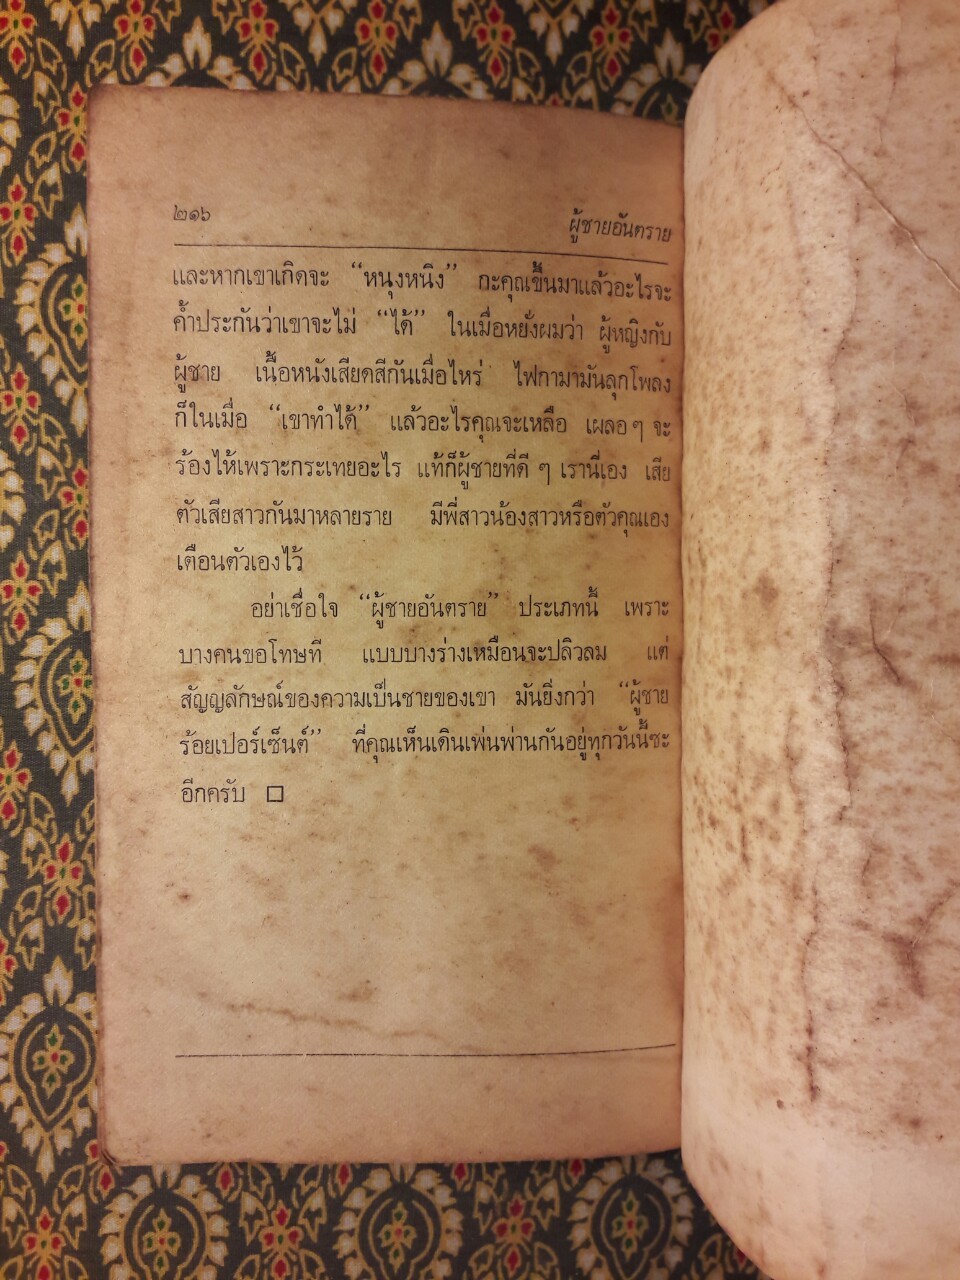 ๒๑๖
ผู้ชายอันตราย
และหากเขาเกิดจะ “หนุงหนิง” กะคุณขึ้นมาแล้วอะไรจะ
ค้ำประกันว่าเขาจะไม่ “ได้” ในเมื่อหยั่งผมว่า ผู้หญิงกับ
ผู้ชาย เนื้อหนังเสียดสีกันเมื่อไหร่ ไฟกามามันลุกโพลง
ก็ในเมื่อ “เขาทำได้” แล้วอะไรคุณจะเหลือ เผลอ ๆ จะ
ร้องไห้เพราะกระเทยอะไร แท้ก็ผู้ชายที่ดี ๆ เรานี่เอง เสีย
ตัวเสียสาวกันมาหลายราย มีพี่สาวน้องสาวหรือตัวคุณเอง
เตือนตัวเองไว้
อย่าเชื่อใจ “ผู้ชายอันตราย” ประเภทนี้ เพราะ
บางคนขอโทษที แบบบางร่างเหมือนจะปลิวลม แต่
สัญญลักษณ์ของความเป็นชายของเขา มันยิ่งกว่า “ผู้ชาย
ร้อยเปอร์เซ็นต์” ที่คุณเห็นเดินเพ่นพ่านกันอยู่ทุกวันนี้ซะ
อีกครับ □